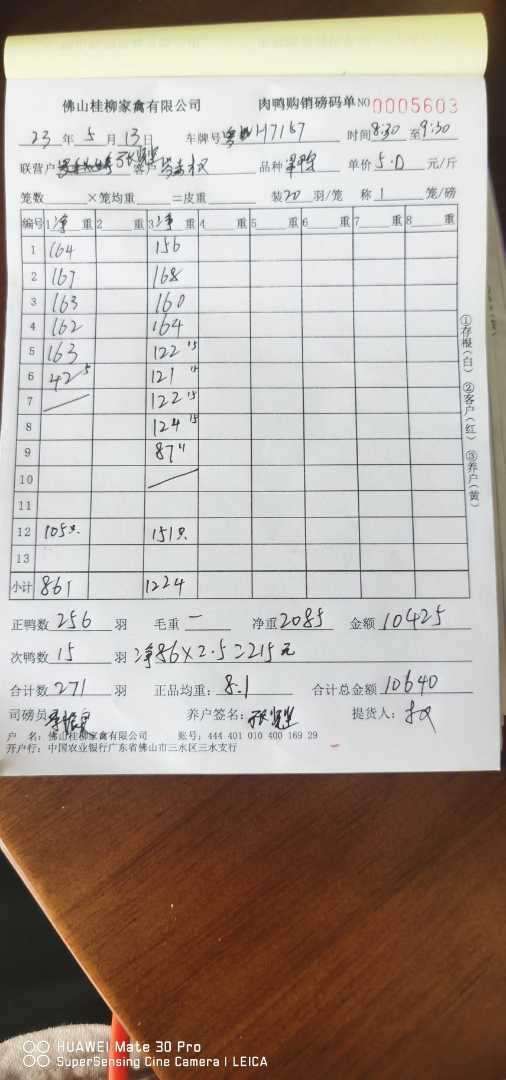 佛山桂柳家禽有限公司 肉鸭购销磅码单 NO 0005603
23 年 5 月 13 日 车牌号 H7167 时间 8:30 至 9:30
联营户 客户 品种 单价 5.0 元/斤
笼数 ×笼均重 =皮重 装 20 羽/笼 称 1 笼/磅
编号 1 净 重 2 重 3 净 重 4 重 5 重 6 重 7 重 8 重
1 164 156
2 167 168
3 163 160
4 162 164
5 163 122 15
6 42 5 121
7 122 15
8 124 15
9 87
10
11
12 105只 151只
13
小计 861 1224
正鸭数 256 羽 毛重 一 净重 2085 金额 10425
次鸭数 15 羽 净86×2.5=215元
合计数 271 羽 正品均重: 8.1 合计总金额 10640
司磅员 养户签名: 提货人: 权
户 名: 佛山桂柳家禽有限公司 账号: 444 401 010 400 169 29
开户行: 中国农业银行广东省佛山市三水区三水支行
①存根(白) ②客户(红) ③养户(黄)
HUAWEI Mate 30 Pro
SuperSensing Cine Camera | LEICA